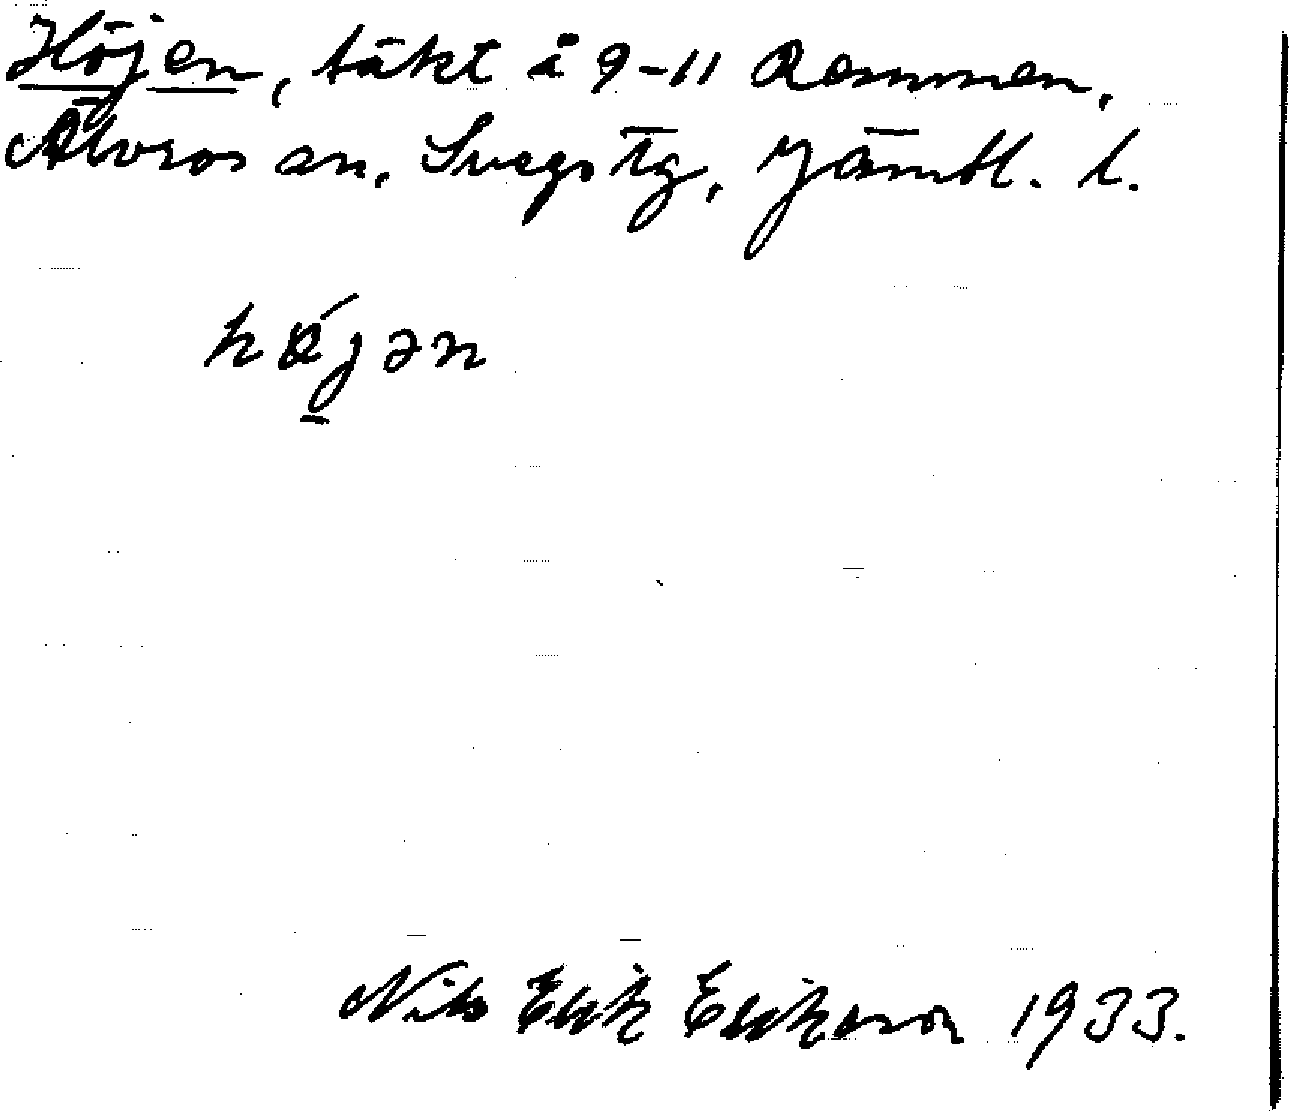 Höjen, täkt å 9-11 Remmen,
Älvros sn, Svegs tg, Jämtl. l.
hö́jən
Nils Erik Eriksson 1933.